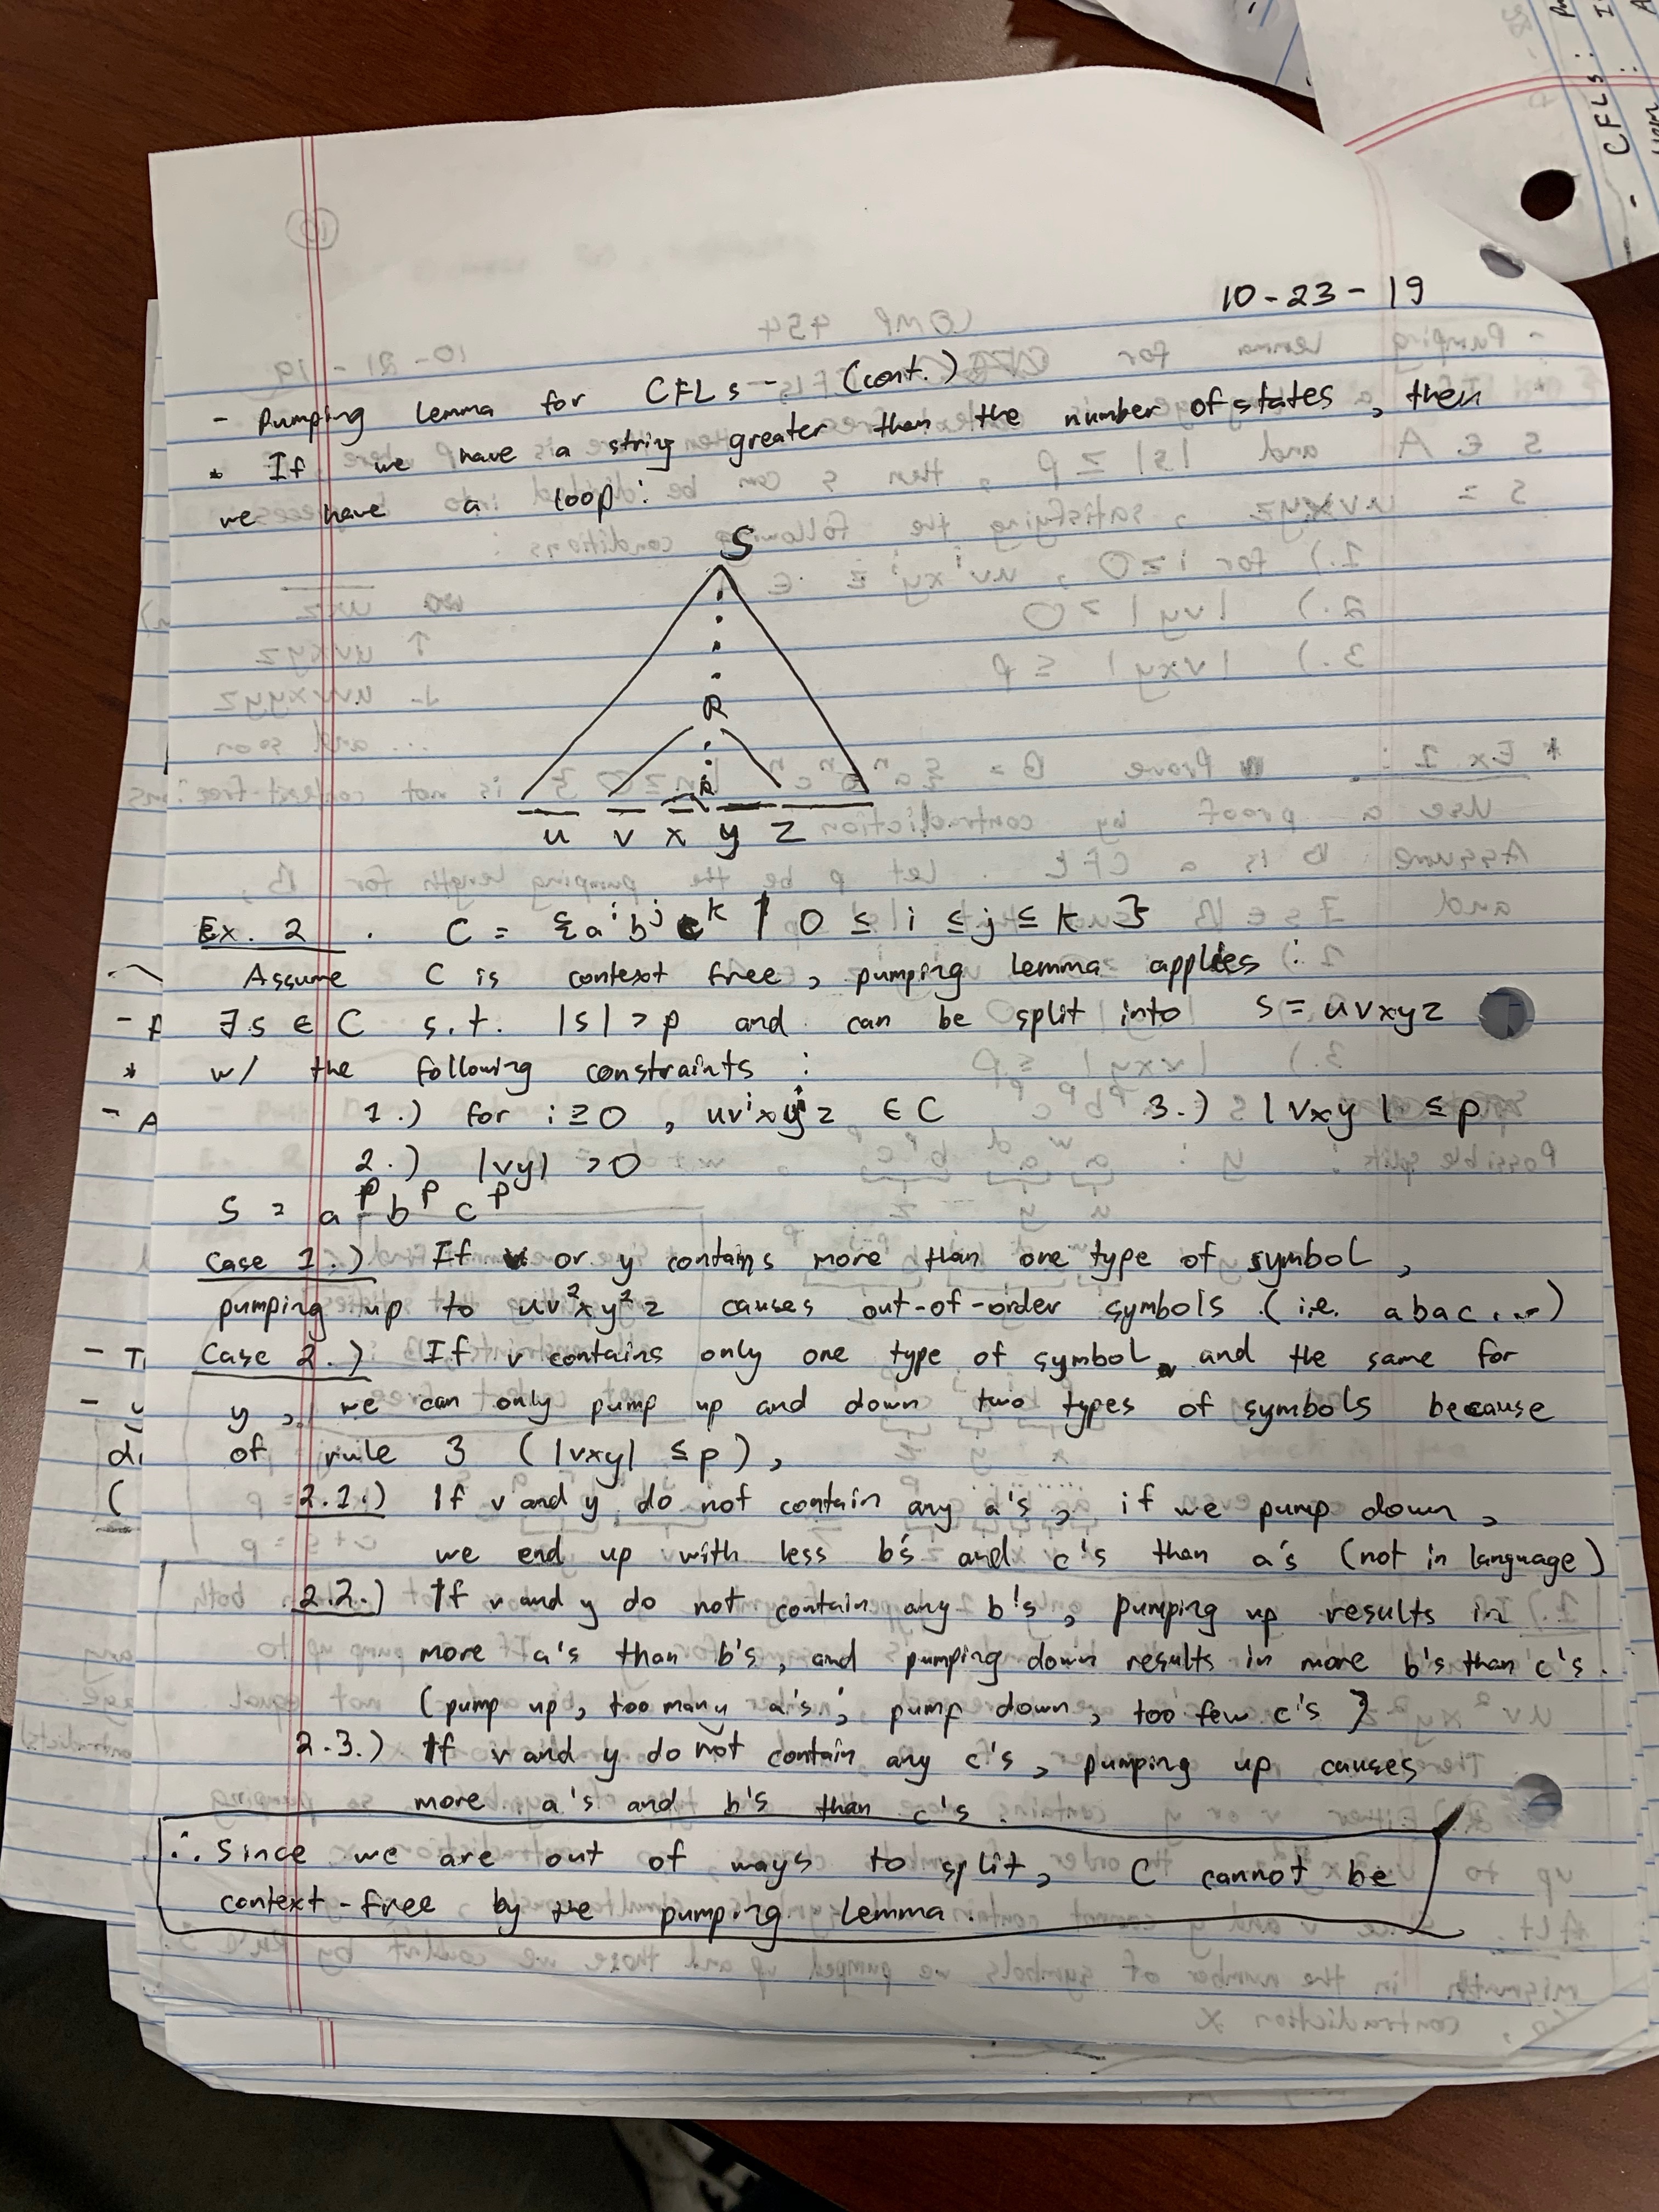 10-23-19
- Pumping lemma for CFLs - (cont.)
* If we have a string greater than the number of states, then
we have a loop:
S
R
R
u v x y z
Ex. 2 . C = {a^i b^j c^k | 0 ≤ i ≤ j ≤ k }
Assume C is context free, pumping lemma applies :
∃s ∈ C s.t. |s| > p and can be split into s = uvxyz
w/ the following constraints :
1.) for i ≥ 0, uv^i xy^i z ∈ C 3.) |vxy| ≤ p
2.) |vy| > 0
S = a^p b^p c^p
Case 1.) If v or y contains more than one type of symbol,
pumping up to uv²xy²z causes out-of-order symbols (i.e. abac...)
Case 2.) If v contains only one type of symbol, and the same for
y, we can only pump up and down two types of symbols because
of rule 3 (|vxy| ≤ p),
2.1.) If v and y do not contain any a's, if we pump down,
we end up with less b's and c's than a's (not in language)
2.2.) If v and y do not contain any b's, pumping up results in
more a's than b's, and pumping down results in more b's than c's.
(pump up, too many a's; pump down, too few c's )
2.3.) If v and y do not contain any c's, pumping up causes
more a's and b's than c's.
∴ Since we are out of ways to split, C cannot be
context-free by the pumping lemma.
CFLs: